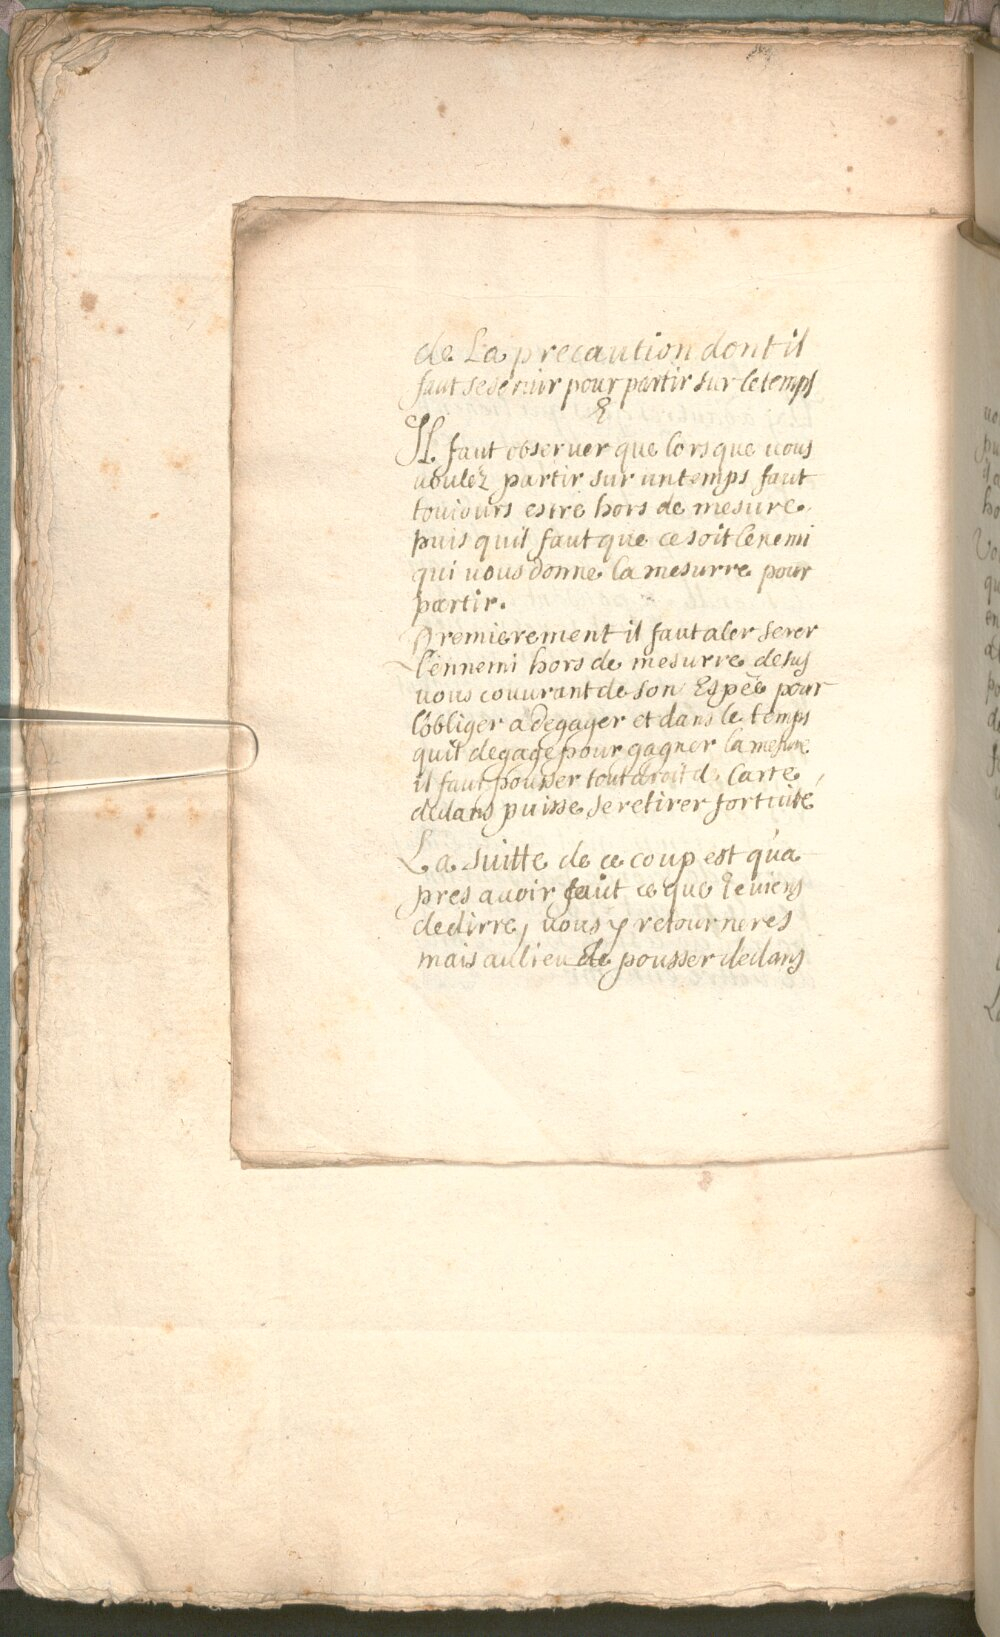 de La precaution dont il
faut se seruir pour partir sur le temps
Il faut obseruer que lorsque uous
uoulez partir sur un temps faut
touiours estre hors de mesure
puis quil faut que ce soit lenemi
qui uous donne la mesurre pour
partir.
Premierement il faut aler serer
l'ennemi hors de mesurre desus
uous couurant de son Espée pour
lobliger a degager et dans le temps
quil degage pour gagner la mesure
il faut pousser tout droit de Carte
dedans puisse se retirer fort uite
La suitte de ce coup est qua
pres auoir faiit ce que Ie uiens
de dirre, uous y retourneres
mais au lieu de pousser dedans